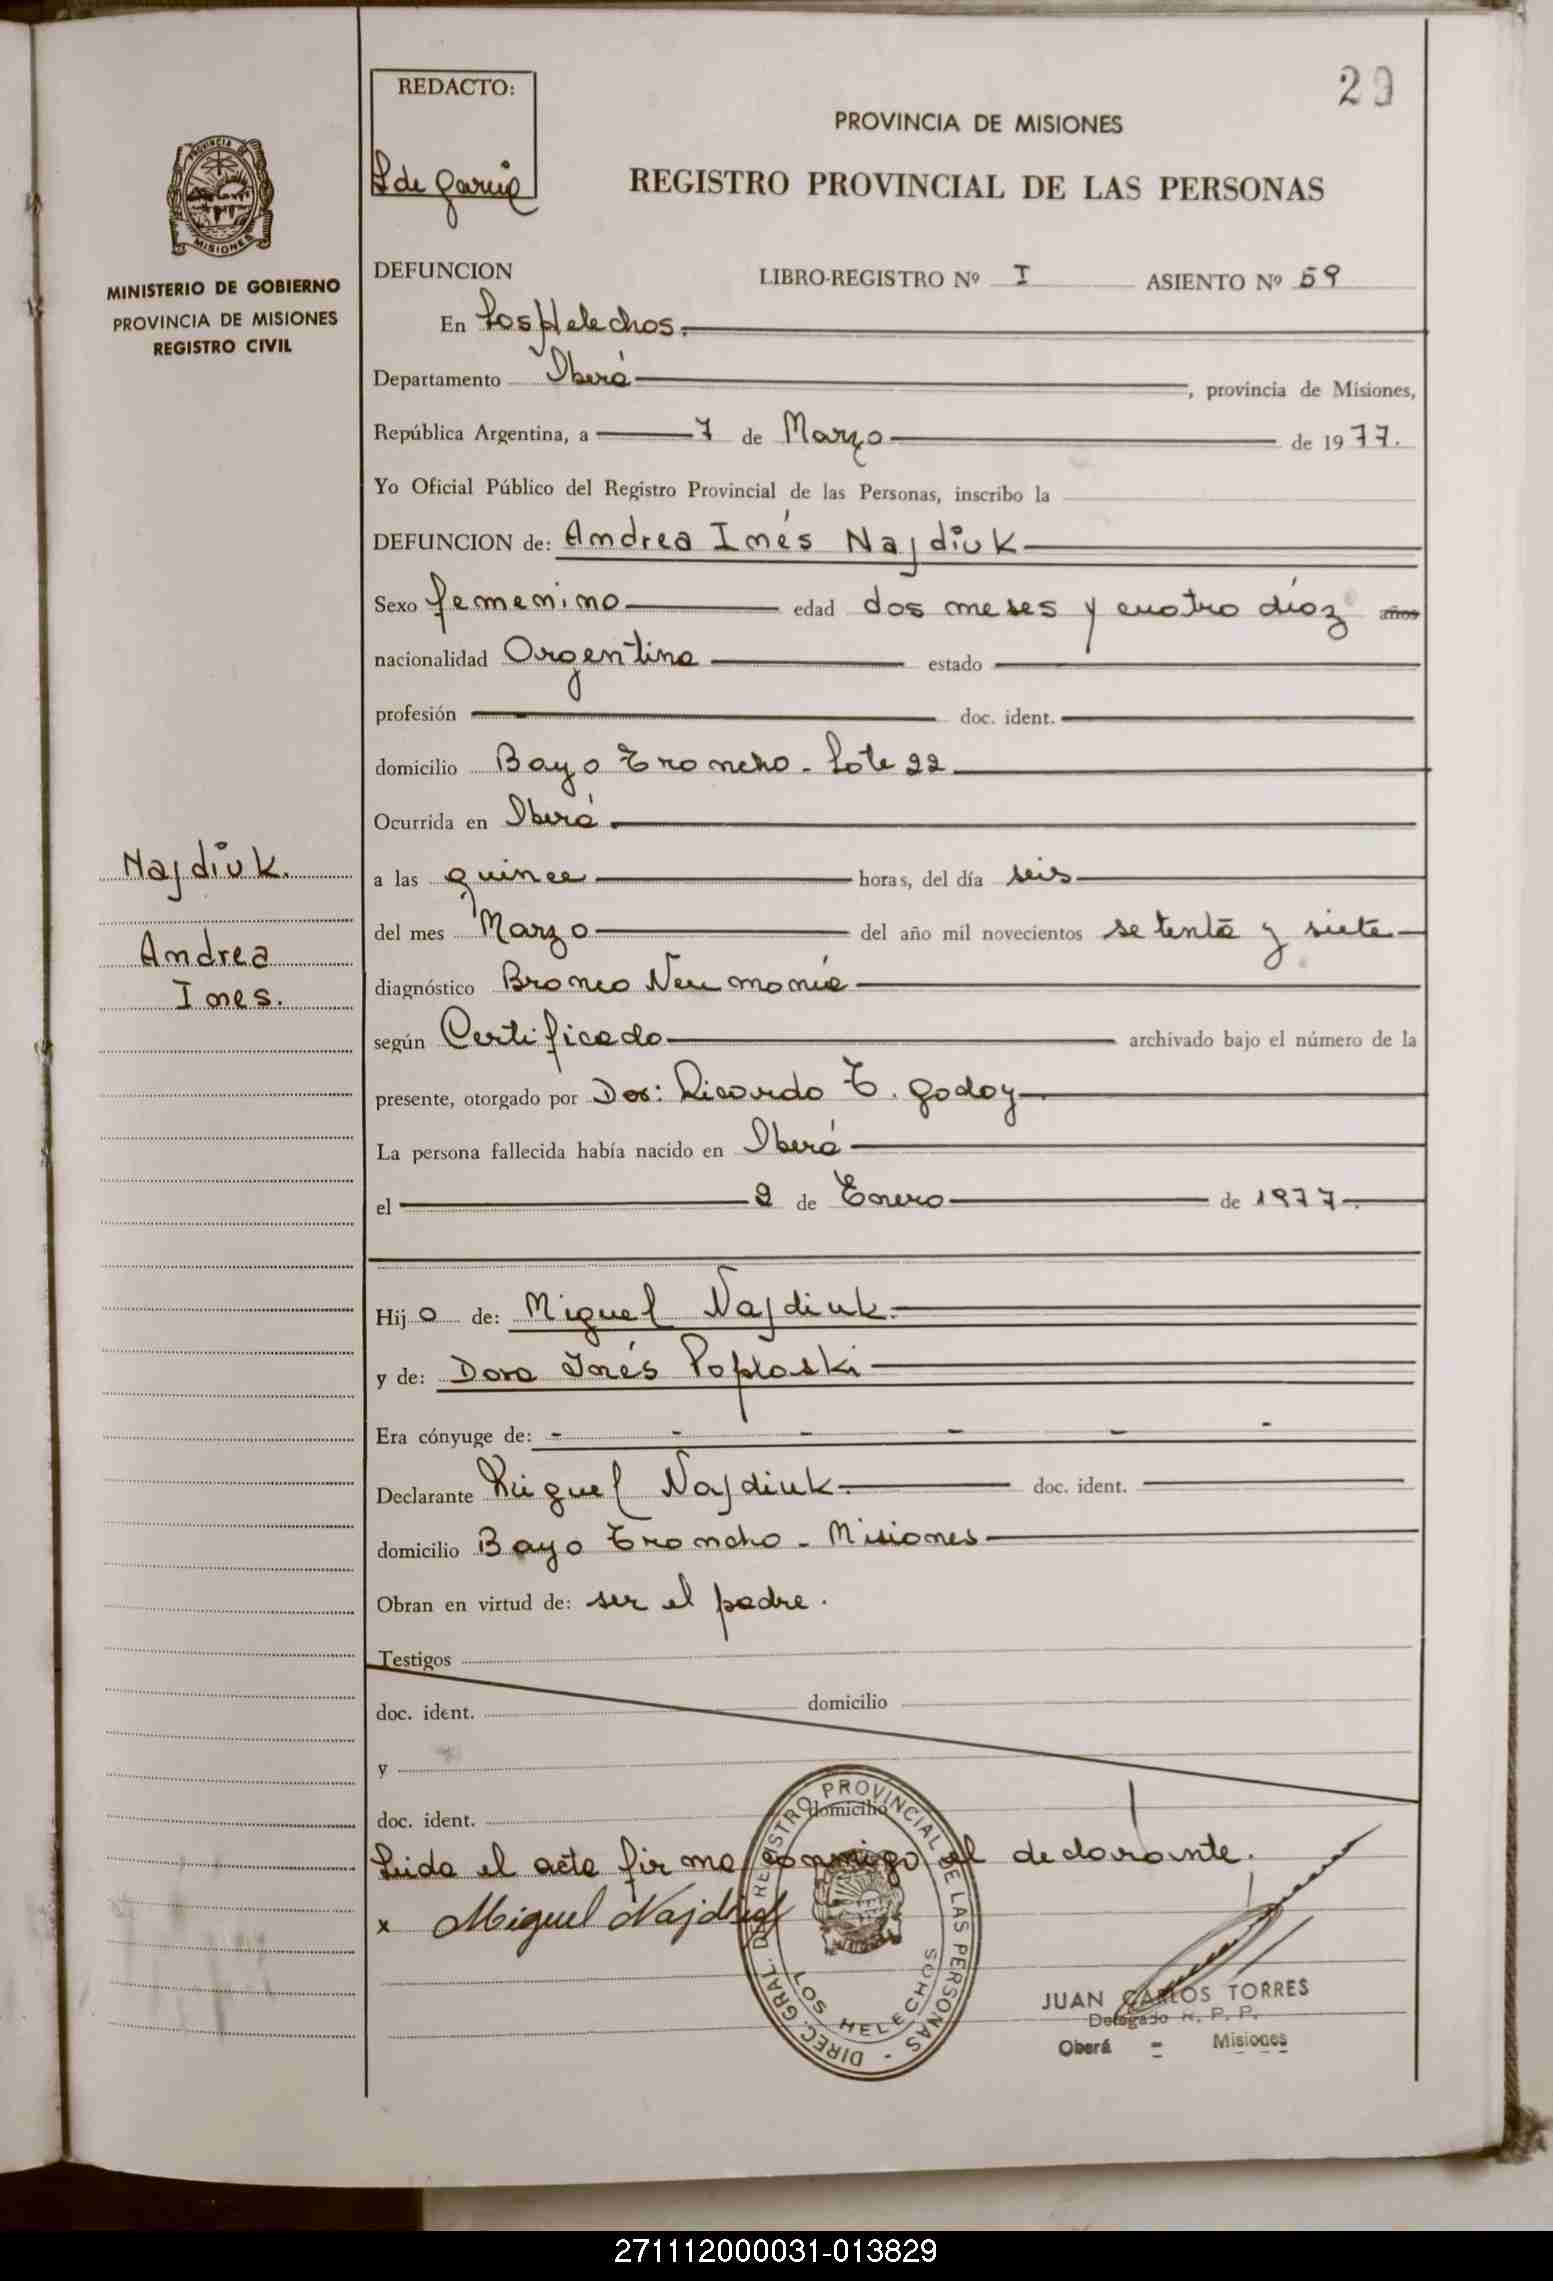 29
REDACTO:
PROVINCIA DE MISIONES
REGISTRO PROVINCIAL DE LAS PERSONAS
PROVINCIA DE
MISIONES
MINISTERIO DE GOBIERNO
PROVINCIA DE MISIONES
REGISTRO CIVIL
DEFUNCION LIBRO-REGISTRO Nº I ASIENTO Nº 59
En Los Helechos.
Departamento Oberá, provincia de Misiones,
República Argentina, a 7 de Marzo de 1977.
Yo Oficial Público del Registro Provincial de las Personas, inscribo la
DEFUNCION de: Andrea Inés Najdiuk
Sexo femenino edad dos meses y cuatro díaz años
nacionalidad Argentina estado
profesión doc. ident.
domicilio Bayo Troncho - Lote 22
Ocurrida en Oberá.
Najdiuk.
Andrea
Ines.
a las quince horas, del día seis
del mes Marzo del año mil novecientos setenta y siete
diagnóstico Bronco Neumonía
según Certificado archivado bajo el número de la
presente, otorgado por Dor: Ricardo T. Godoy
La persona fallecida había nacido en Oberá
el 2 de Enero de 1977.
Hijo de: Miguel Najdiuk.
y de: Dora Inés Poploski
Era cónyuge de: - - - - - -
Declarante Miguel Najdiuk. doc. ident.
domicilio Bayo Troncho - Misiones
Obran en virtud de: ser el padre.
Testigos
doc. ident. domicilio
y
doc. ident. domicilio
Leida el acta firma conmigo el declarante.
x Miguel Najdiuk
DIREC. GRAL. DE REGISTRO PROVINCIAL DE LAS PERSONAS -
LOS HELECHOS
JUAN CARLOS TORRES
Delegado R. P. P.
Oberá - Misiones
271112000031-013829